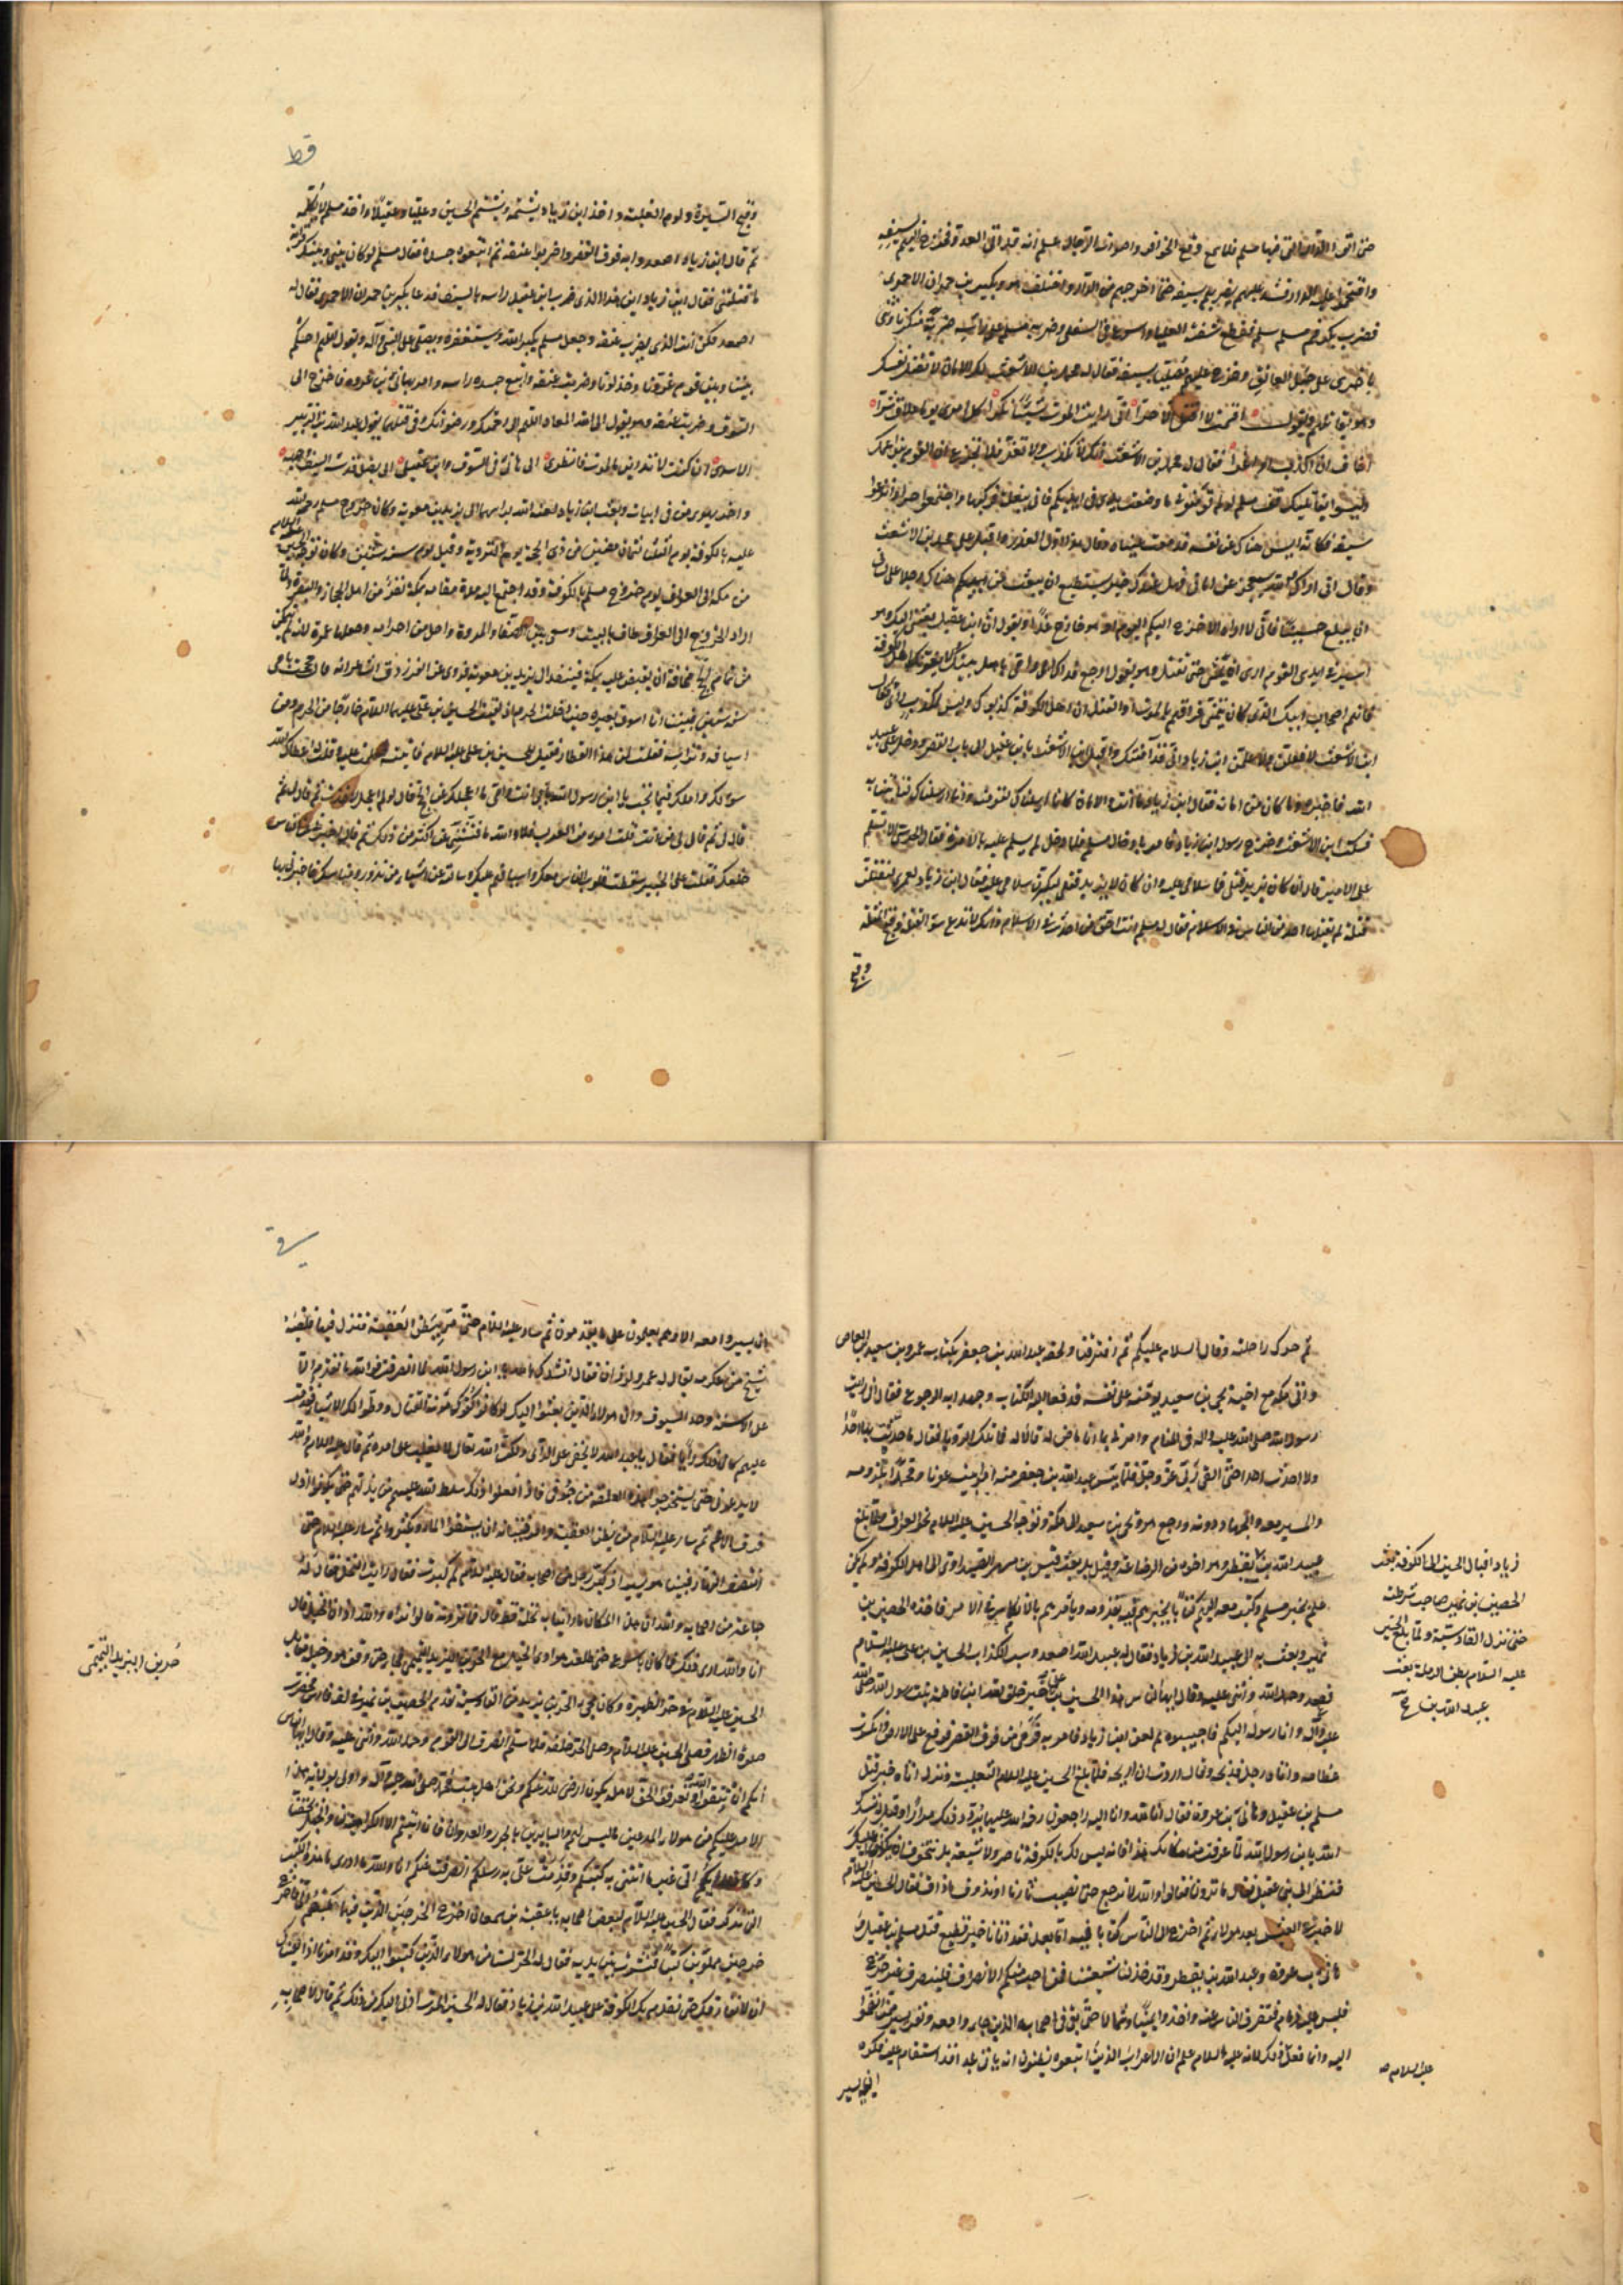 حتى اتى الدار التى فيها مسلم فلما سمع وقع الحوافر واصوات الرجال علم انه قد اتى العدو فخرج اليهم بسيفه
واقتحموا عليه الدار فشد عليهم يضربهم بسيفه حتى اخرجهم من الدار واختلف هو وبكير بن حمران الاحمرى
فضرب بكر فم مسلم فقطع شفته العليا واسرع فى السفلى وضربه مسلم على راسه ضربة منكرة وثنى
باخرى على حبل العاتق وخرج عليهم مصلتا بسيفه فقال له محمد بن الاشعث لك الامان لا تقتل نفسك
وهو يقاتلهم ويقول اقسمت لا اقتل الا حرا انى رايت الموت شيئا نكرا كل امرئ يوما ملاق شرا
اخاف ان اكذب او اغرا فقال له محمد بن الاشعث انك لا تكذب ولا تغر فلا تجزع ان القوم بنو عمك
وليسوا بقاتليك فقال مسلم لو لم تؤمنونى ما وضعت يدى فى ايديكم فاتى ببغلة فركبها واجتمعوا حوله وانتزعوا
سيفه فكانه ايس هناك من نفسه فدمعت عيناه وقال هذا اول الغدر واقبل على محمد بن الاشعث
وقال انى اراك والله ستعجز عن امانى فهل عندك خير تستطيع ان تبعث من عندك رجلا على لسانى
ان يبلغ حسينا فانى لا اراه الا خرج اليكم اليوم او هو خارج غدا ويقول ان ابن عقيل بعثنى اليك وهو
اسير فى ايدى القوم لا يرى ان يمسى حتى يقتل وهو يقول ارجع فداك ابى وامى باهل بيتك لا يغرنك اهل الكوفة
فانهم اصحاب ابيك الذى كان يتمنى فراقهم بالموت او القتل ان اهل الكوفة كذبوك وليس لمكذوب راى فقال
ابن الاشعث لافعلن ولاعلمن ابن زياد انى قد آمنتك واقبل ابن الاشعث بابن عقيل الى باب القصر ودخل على عبيد
الله فاخبره وما كان من امانه فقال ابن زياد ما انت والامان كانا ارسلناك لتؤمنه وانما ارسلناك لتاتينا به
فسكت ابن الاشعث وخرج رسول ابن زياد فامر بادخال مسلم فلما دخل لم يسلم عليه بالامرة فقال الحرسى الا تسلم
على الامير قال ان كان يريد قتلى فما سلامى عليه وان كان لا يريد قتلى ليكثرن سلامى عليه فقال ابن زياد لعمرى لتقتلن
قتلة لم يقتلها احد من الناس فى الاسلام فقال له مسلم انت احق من احدث فى الاسلام وانك لا تدع سوء القتل وقبح المثلة
وقبح
قط
وقبح السيرة ولوم الغلبة واخذ ابن زياد يشتمه ويشتم الحسين وعليا وعقيلا واخذ مسلم لا يكلمه
ثم قال ابن زياد اصعدوا به فوق القصر واضربوا عنقه ثم اتبعوه جسده فقال مسلم لو كان بينى وبينك قرابة
ما قتلتنى فقال ابن زياد اين هذا الذى ضرب ابن عقيل راسه بالسيف فدعا بكير بن حمران الاحمرى فقال له
اصعد فكن انت الذى يضرب عنقه وجعل مسلم يكبر الله ويستغفره ويصلى على النبى وآله ويقول اللهم احكم
بيننا وبين قوم غرونا وخذلونا وضربت عنقه واتبع جسده راسه وامر بهانى بن عروة فاخرج الى
السوق وضربت عنقه وهو يقول الى الله المعاد اللهم الى رحمتك ورضوانك وفى قتلهما يقول عبد الله بن الزبير
الاسدى ان كنت لا تدرين ما الموت فانظرى الى هانى فى السوق وابن عقيل الى بطل قد هشم السيف وجهه
عليه بالكوفة يوم الثلثا لثمان مضين من ذى الحجة يوم التروية وقيل يوم سنة ستين وكان توجه الحسين عليه السلام
من مكة الى العراق يوم خروج مسلم بالكوفة وقد اجتمع اليه مدة مقامه بمكة نفر من اهل الحجاز والبصرة ولما
اراد الخروج الى العراق طاف بالبيت وسعى بين الصفا والمروة واحل من احرامه وجعلها عمرة لانه لم يتمكن
سنة ستين فبينا انا اسوق بعيرها حين دخلت الحرم اذ لقيت الحسين بن على عليهما السلام خارجا من الحرم ومن
فسـ
ثم حرك راحلته وقال السلام عليكم ثم افترقنا ولحقه عبد الله بن جعفر بكتاب عمرو بن سعيد بن العاص
والى مكة مع اخيه يحيى بن سعيد يؤمنه على نفسه فدفعا اليه الكتاب وجهدا به الرجوع فقال انى رايت
رسول الله صلى الله عليه واله فى المنام وامرنى بما انا ماض له قالا له فما تلك الرؤيا فقال ما حدثت بها احدا
ولا احدث احدا حتى القى ربى عز وجل فلما يئس عبد الله بن جعفر منه امر ابنيه عونا ومحمدا بلزومه
والمسير معه والجهاد دونه ورجع هو ويحيى بن سعيد الى مكة وتوجه الحسين عليه السلام نحو العراق ولما بلغ
عبيد الله بن يقطر وهو اخوه من الرضاعة وقيل بل بعث قيس بن مسهر الصيداوى الى اهل الكوفة ولم يكن
علم بخبر مسلم وكتب معه اليهم كتابا يخبرهم فيه بقدومه ويامرهم بالانكماش فى الامر فاخذه الحصين بن
نمير وبعث به الى عبيد الله بن زياد فقال له عبيد الله اصعد وسب الكذاب الحسين بن على عليه السلام
فصعد وحمد الله واثنى عليه وقال ايها الناس هذا الحسين بن على خير خلق الله ابن فاطمة بنت رسول الله صلى الله
عليه وآله وانا رسوله اليكم فاجيبوه ثم لعن ابن زياد فامر به فرمى من فوق القصر فوقع على الارض وانكسرت
عظامه واتاه رجل فذبحه وقال اردت ان اريحه فلما بلغ الحسين عليه السلام الثعلبية ونزل اتاه خبر قتل
مسلم بن عقيل وهانى بن عروة فقال انا لله وانا اليه راجعون رحمة الله عليهما يردد ذلك مرارا وقيل له ننشدك
الله يا بن رسول الله لما انصرفت من مكانك هذا فانه ليس لك بالكوفة ناصر ولا شيعة بل نتخوف ان يكونوا عليك
فنظر الى بنى عقيل فقال ما ترون فقالوا والله لا نرجع حتى نصيب ثارنا او نذوق ما ذاق فقال الحسين عليه السلام
لا خير فى العيش بعد هؤلاء ثم اخرج الى الناس كتابا فيه اما بعد فقد اتانا خبر فظيع قتل مسلم بن عقيل و
هانى بن عروة وعبد الله بن يقطر وقد خذلنا شيعتنا فمن احب منكم الانصراف فلينصرف غير حرج
فليس عليه ذمام فتفرق الناس عنه واخذوا يمينا وشمالا حتى بقى فى اصحابه الذين جاؤا معه ونفر يسير ممن انضموا
اليه وانما فعل ذلك لانه عليه السلام علم ان الاعراب الذين اتبعوه يظنون انه ياتى بلدا قد استقام عليه فكره
زياد اقبال الحسين الى الكوفة بعث
الحصين بن نمير صاحب شرطته
حتى نزل القادسية ولما بلغ الحسين
عليه السلام بطن الرملة بعث
عبد الله بن
عليه السلام
ان يسيروا معه الا وهم يعلمون على ما يقدمون ثم سار عليه السلام حتى مر ببطن العقبة فنزل فيها فلقيه
شيخ من بنى عكرمة يقال له عمرو بن لوذان فقال انشدك الله يا ابن رسول الله لما انصرفت فوالله ما تقدم الا
على الاسنة وحد السيوف وان هؤلاء الذين بعثوا اليك لو كانوا كفوك مؤنة القتال ووطؤا لك الاشياء فقدمت
عليهم كان ذلك رايا فقال يا عبد الله لا يخفى على الراى ولكن الله تعالى لا يغلب على امره ثم قال عليه السلام والله
لا يدعونى حتى يستخرجوا هذه العلقة من جوفى فاذا فعلوا ذلك سلط الله عليهم من يذلهم حتى يكونوا اذل
فرق الامم ثم سار عليه السلام من بطن العقبة وامر فتيانه ان يستقوا الماء ويكثروا ثم سار عليه السلام حتى
انتصف النهار فبينا هو يسير اذ كبر رجل من اصحابه فقال عليه السلام لم كبرت فقال رايت النخل فقال له
جماعة من اصحابه والله ان هذا المكان ما راينا به نخلة قط قال فما ترونه قالوا نراه والله اذان الخيل قال
انا والله ارى ذلك فما كان باسرع حتى طلعت هوادى الخيل مع الحر بن يزيد التميمى فجاء حتى وقف هو وخيله مقابل
الحسين عليه السلام فى حر الظهيرة وكان مجىء الحر بن يزيد من القادسية تقدم الحصين بن نمير فى الف فارس فحضرت
صلوة الظهر فصلى الحسين عليه السلام وصلى الحر خلفه فلما سلم انصرف الى القوم وحمد الله واثنى عليه وقال ايها الناس
انكم ان تتقوا الله وتعرفوا الحق لاهله يكون ارضى لله عنكم ونحن اهل بيت محمد صلى الله عليه وآله اولى بولاية هذا
الامر عليكم من هؤلاء المدعين ما ليس لهم والسائرين بالجور والعدوان فان ابيتم الا الكراهية لنا والجهل بحقنا
وكان رايكم الان غير ما اتتنى به كتبكم وقدمت على به رسلكم انصرفت عنكم فقال الحر انا والله ما ادرى ما هذه الكتب
التى تذكر فقال الحسين عليه السلام لبعض اصحابه يا عقبة بن سمعان اخرج الخرجين الذين فيهما كتبهم الى فاخرج
خرجين مملوين كتبا فنثرت بين يديه فقال له الحر لسنا من هؤلاء الذين كتبوا اليك وقد امرنا اذا لقيناك
ان لا نفارقك حتى نقدمك الكوفة على عبيد الله بن زياد فقال له الحسين الموت ادنى اليك من ذلك ثم قال لاصحابه
حر بن يزيد التميمى